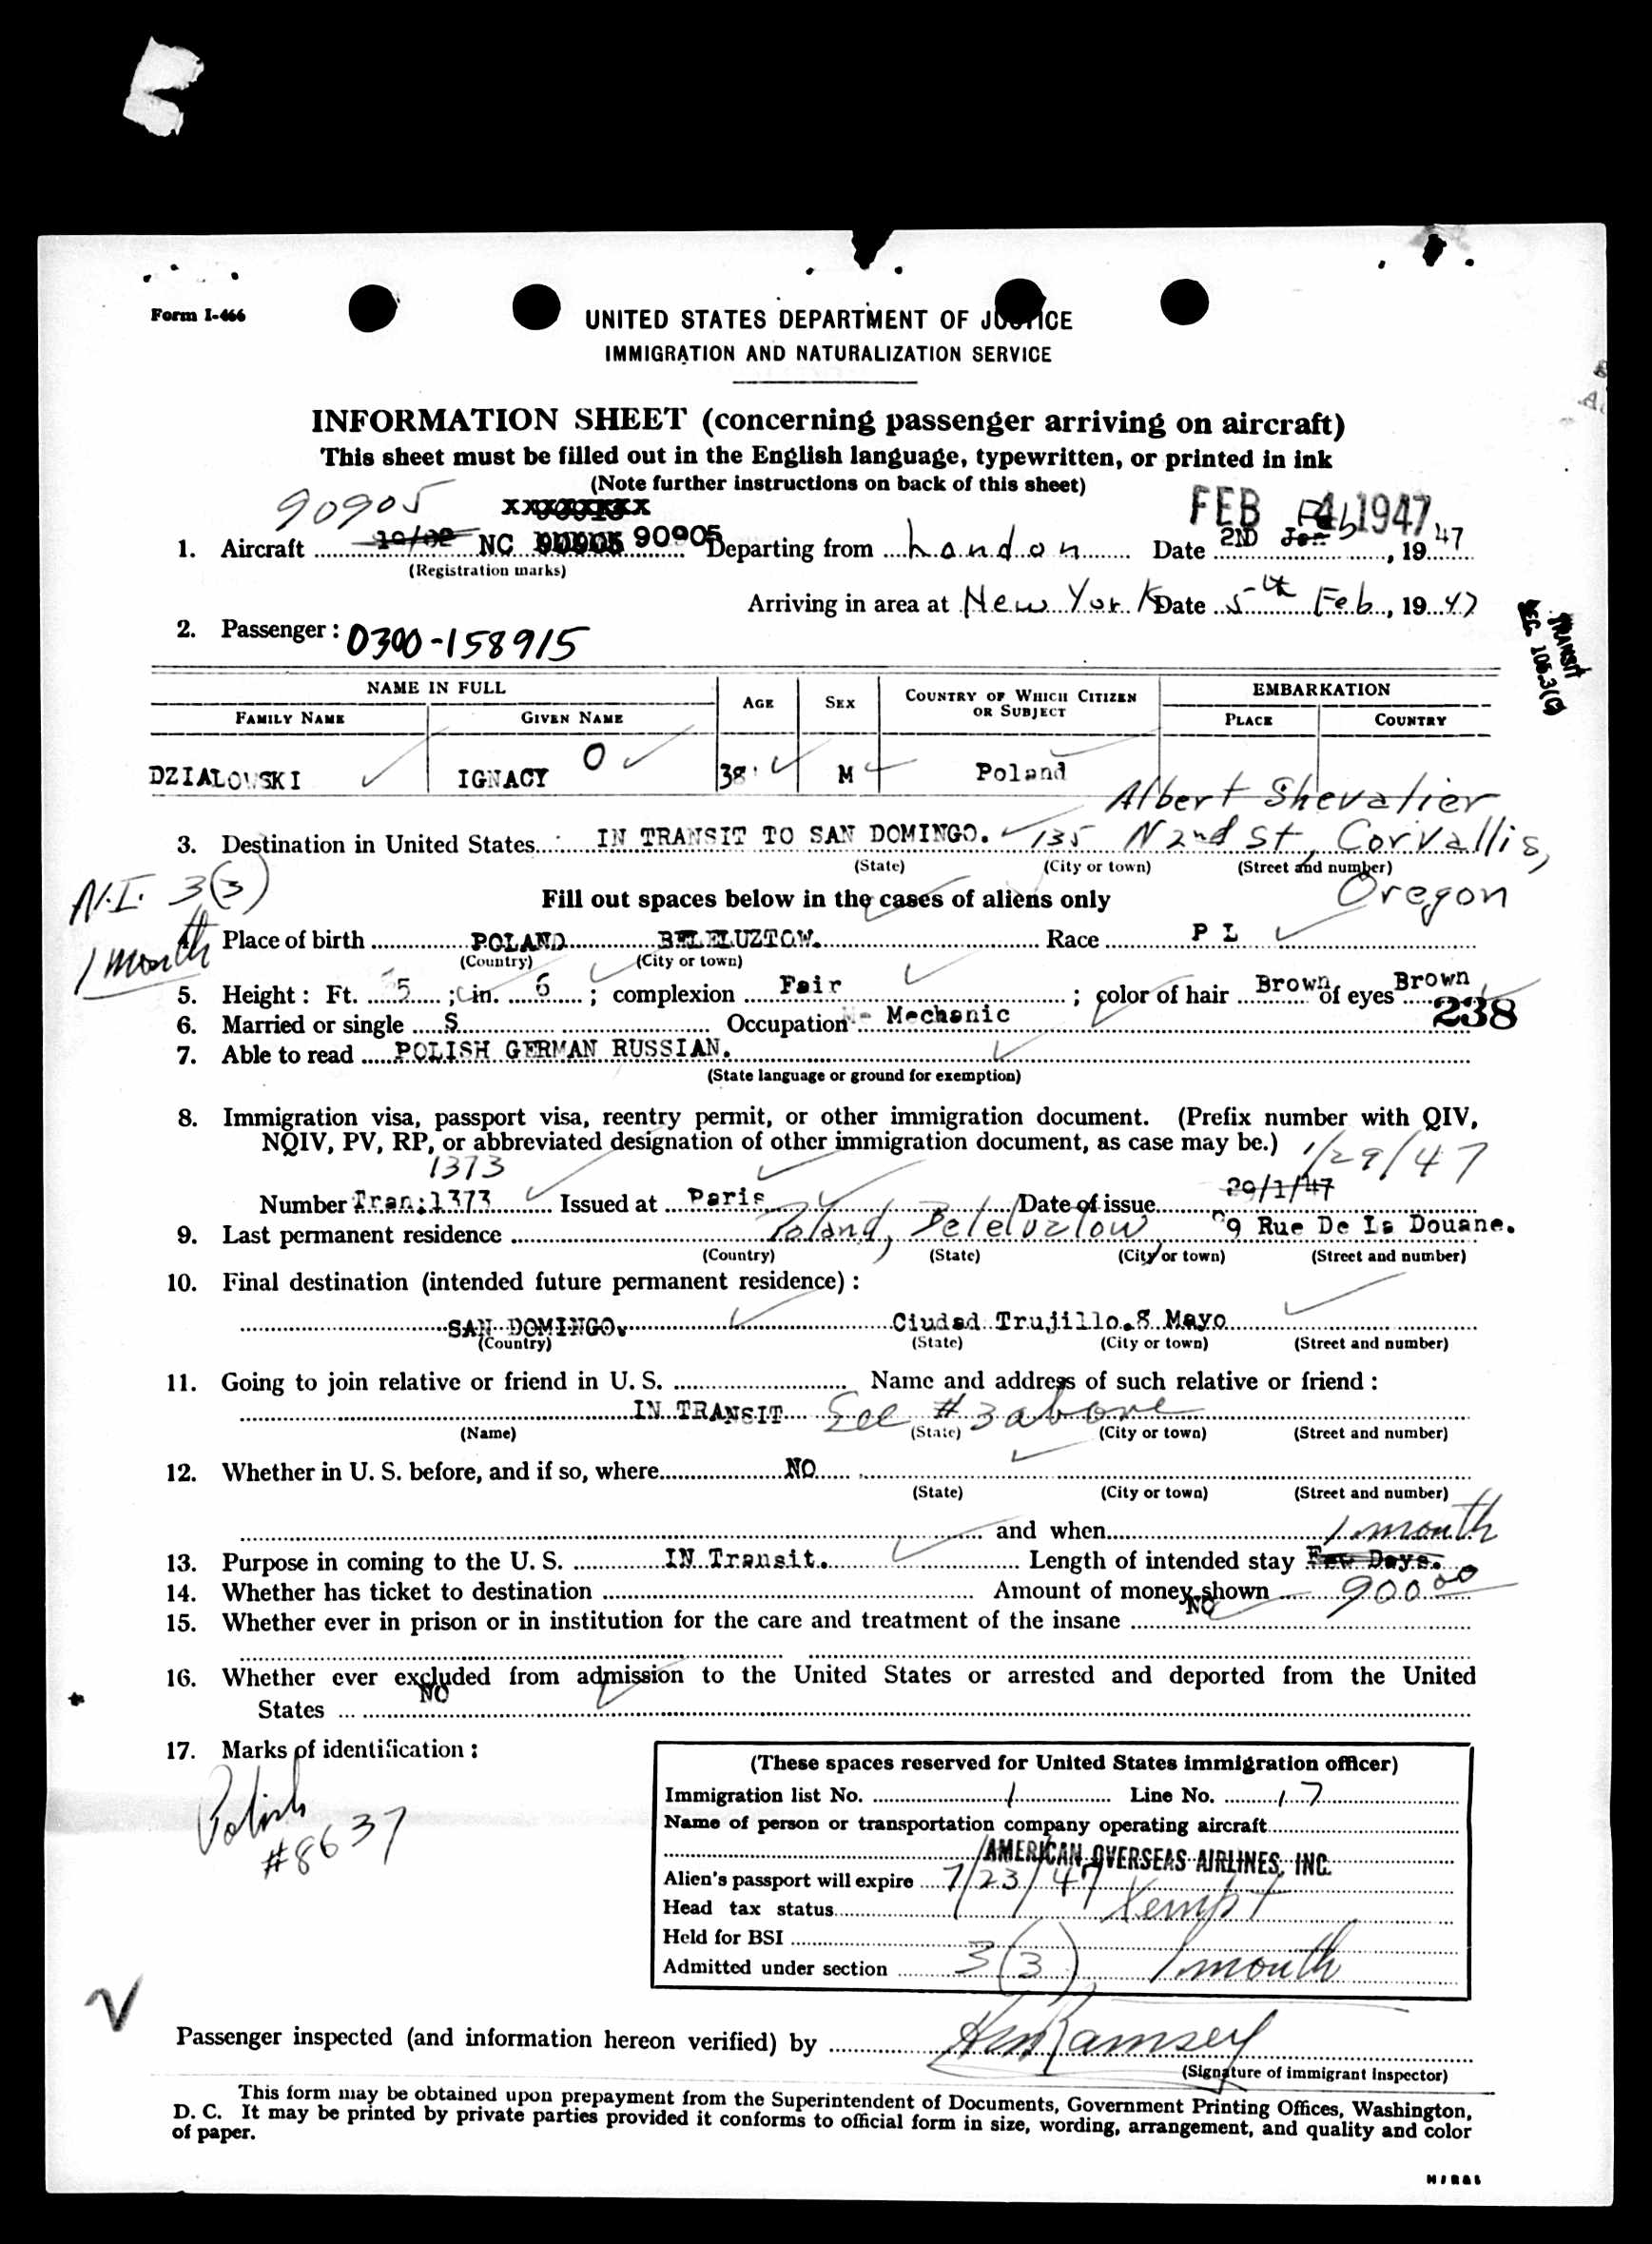 Form I-466
UNITED STATES DEPARTMENT OF JUSTICE
IMMIGRATION AND NATURALIZATION SERVICE
INFORMATION SHEET (concerning passenger arriving on aircraft)
This sheet must be filled out in the English language, typewritten, or printed in ink
(Note further instructions on back of this sheet)
90905 FEB 4 1947
1. Aircraft NC 90905 Departing from London Date 2ND Feb, 19 47
(Registration marks)
Arriving in area at New York Date 5th Feb, 19 47
2. Passenger: 0300-158915
TRANSIT
SEC. 106.3(
NAME IN FULL AGE SEX COUNTRY OF WHICH CITIZEN OR SUBJECT EMBARKATION
FAMILY NAME GIVEN NAME PLACE COUNTRY
DZIALOWSKI IGNACY O 38 M Poland
Albert Shevalier
3. Destination in United States IN TRANSIT TO SAN DOMINGO. 135 N 2nd St, Corvallis,
(State) (City or town) (Street and number)
Oregon
N.I. 3(3)
1 month
Fill out spaces below in the cases of aliens only
4. Place of birth POLAND BELELUZTOW. Race P L
(Country) (City or town)
5. Height: Ft. 5 ; in. 6 ; complexion Fair ; color of hair Brown of eyes Brown
238
6. Married or single S Occupation Mechanic
7. Able to read POLISH GERMAN RUSSIAN.
(State language or ground for exemption)
8. Immigration visa, passport visa, reentry permit, or other immigration document. (Prefix number with QIV,
NQIV, PV, RP, or abbreviated designation of other immigration document, as case may be.)
1373 1/29/47
Number Tran:1373 Issued at Paris Date of issue 29/1/47
9. Last permanent residence Poland, Beleluzlow 9 Rue De La Douane.
(Country) (State) (City or town) (Street and number)
10. Final destination (intended future permanent residence):
SAN DOMINGO. Ciudad Trujillo.8 Mayo
(Country) (State) (City or town) (Street and number)
11. Going to join relative or friend in U. S. Name and address of such relative or friend:
IN TRANSIT See #3 above
(Name) (State) (City or town) (Street and number)
12. Whether in U. S. before, and if so, where NO
(State) (City or town) (Street and number)
and when
1 month
13. Purpose in coming to the U. S. IN Transit. Length of intended stay Few Days.
14. Whether has ticket to destination Amount of money shown 900.00
15. Whether ever in prison or in institution for the care and treatment of the insane NO
16. Whether ever excluded from admission to the United States or arrested and deported from the United
States NO
17. Marks of identification:
Polish
#8637
(These spaces reserved for United States immigration officer)
Immigration list No. 1 Line No. 17
Name of person or transportation company operating aircraft
AMERICAN OVERSEAS AIRLINES, INC.
Alien's passport will expire 7/23/47
Head tax status Xempt
Held for BSI
Admitted under section 3(3) 1 month
Passenger inspected (and information hereon verified) by Ramsey
(Signature of immigrant inspector)
This form may be obtained upon prepayment from the Superintendent of Documents, Government Printing Offices, Washington,
D. C. It may be printed by private parties provided it conforms to official form in size, wording, arrangement, and quality and color
of paper.